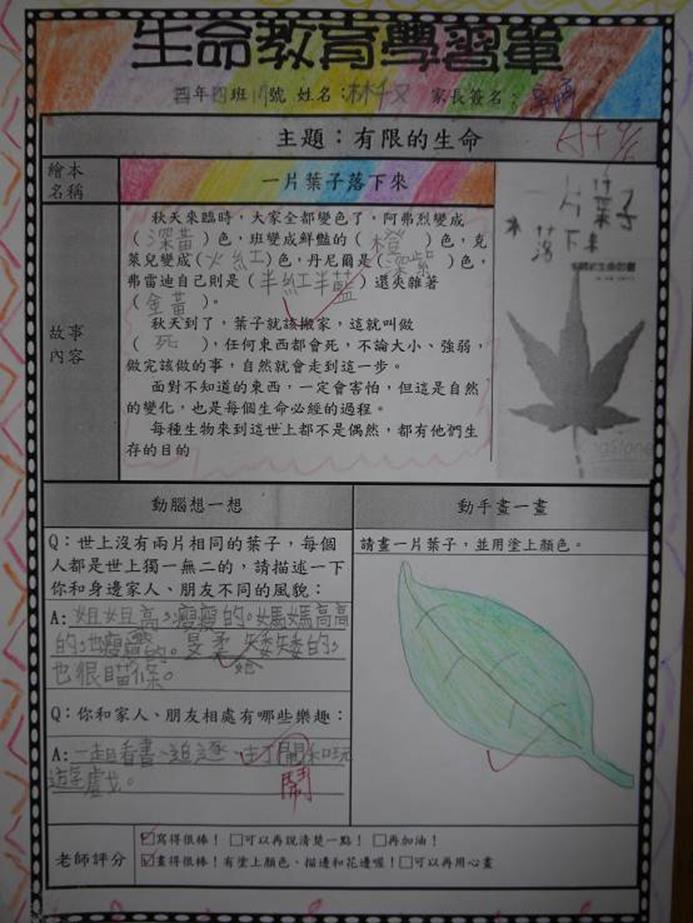 生命教育學習單
四年四班 號 姓名：林千又 家長簽名：
主題：有限的生命
A+
繪本
名稱
一片葉子落下來
一片葉子
落下來
故事
內容
秋天來臨時，大家全都變色了，阿弗烈變成
（深黃）色，班變成鮮豔的（橙）色，克
萊兒變成（火紅）色，丹尼爾是（深紫）色，
弗雷迪自己則是（半紅半藍）還夾雜著
（金黃）。
秋天到了，葉子就該搬家，這就叫做
（死），任何東西都會死，不論大小、強弱，
做完該做的事，自然就會走到這一步。
面對不知道的東西，一定會害怕，但這是自然
的變化，也是每個生命必經的過程。
每種生物來到這世上都不是偶然，都有他們生
存的目的
動腦想一想
動手畫一畫
Q：世上沒有兩片相同的葉子，每個
人都是世上獨一無二的，請描述一下
你和身邊家人、朋友不同的風貌：
A：姐姐高，瘦瘦的。媽媽高高
的，也瘦瘦的。旻柔矮矮的，
她
也很瞄條。
Q：你和家人、朋友相處有哪些樂趣：
A：一起看書、追逐、 和玩
遊字虛戈。
鬧
請畫一片葉子，並用塗上顏色。
老師評分
☑寫得很棒！□可以再說清楚一點！□再加油！
☑畫得很棒！有塗上顏色、描邊和花邊喔！□可以再用心畫